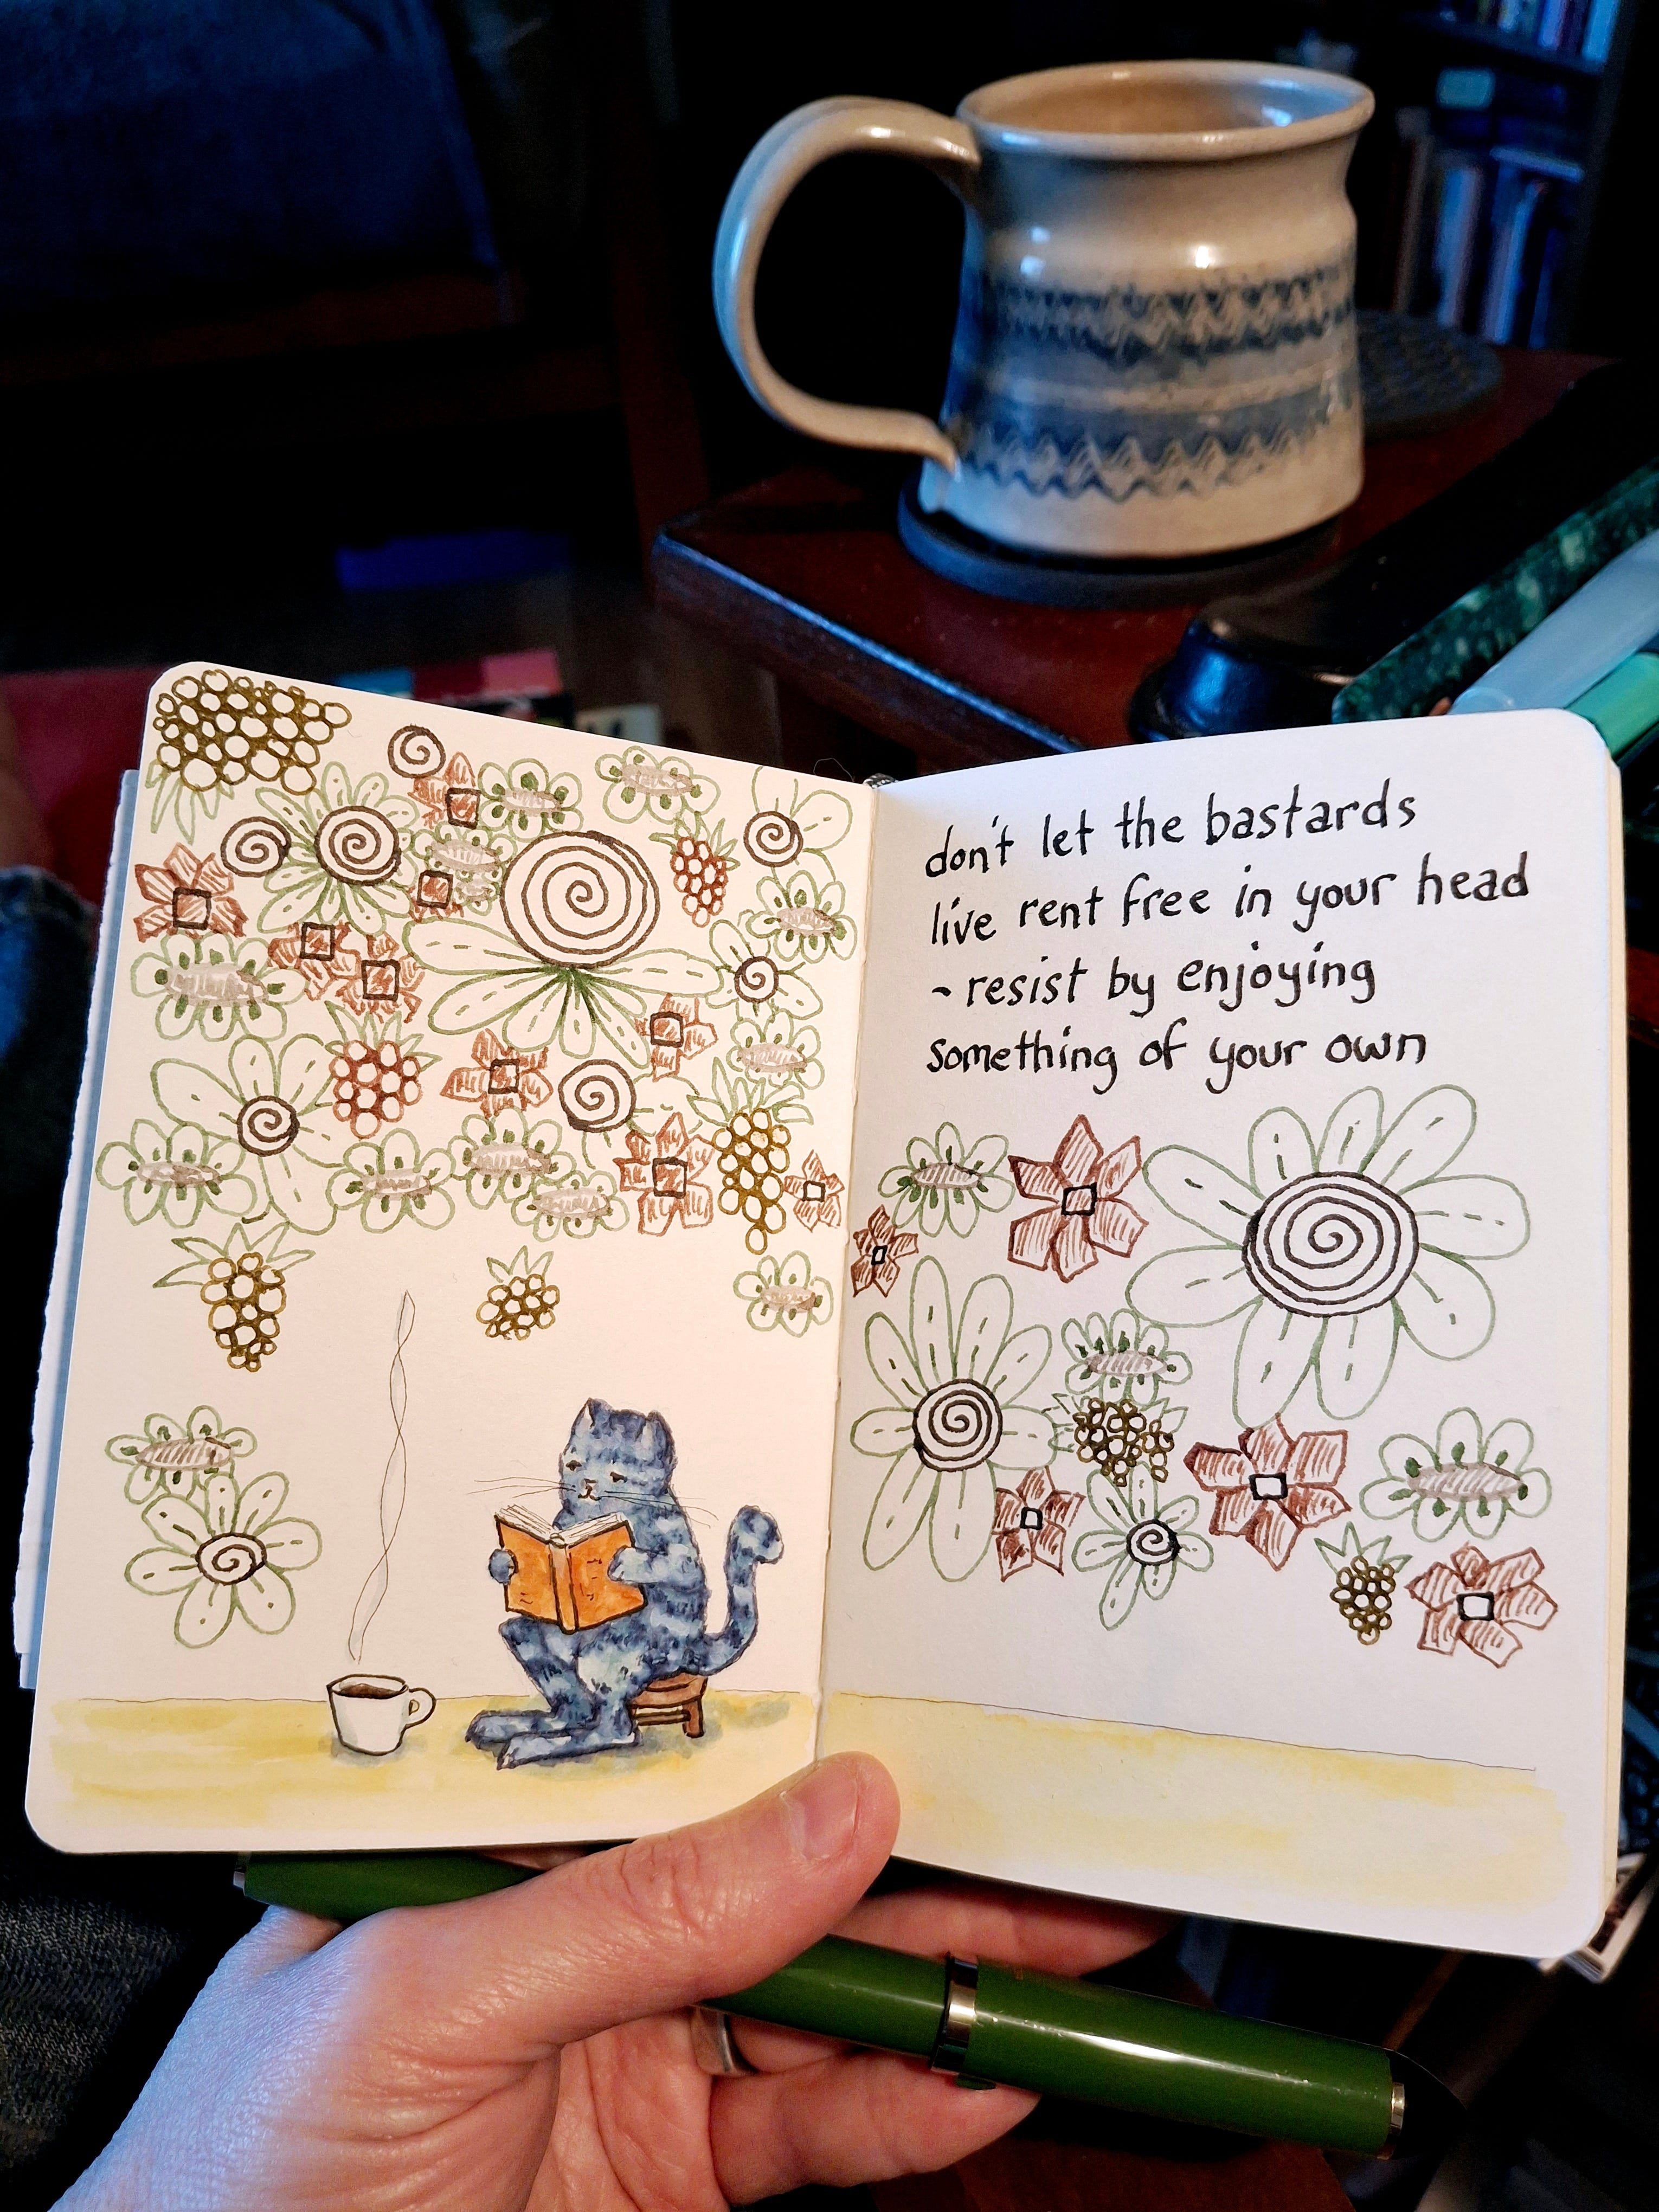 don't let the bastards
live rent free in your head
~ resist by enjoying
something of your own